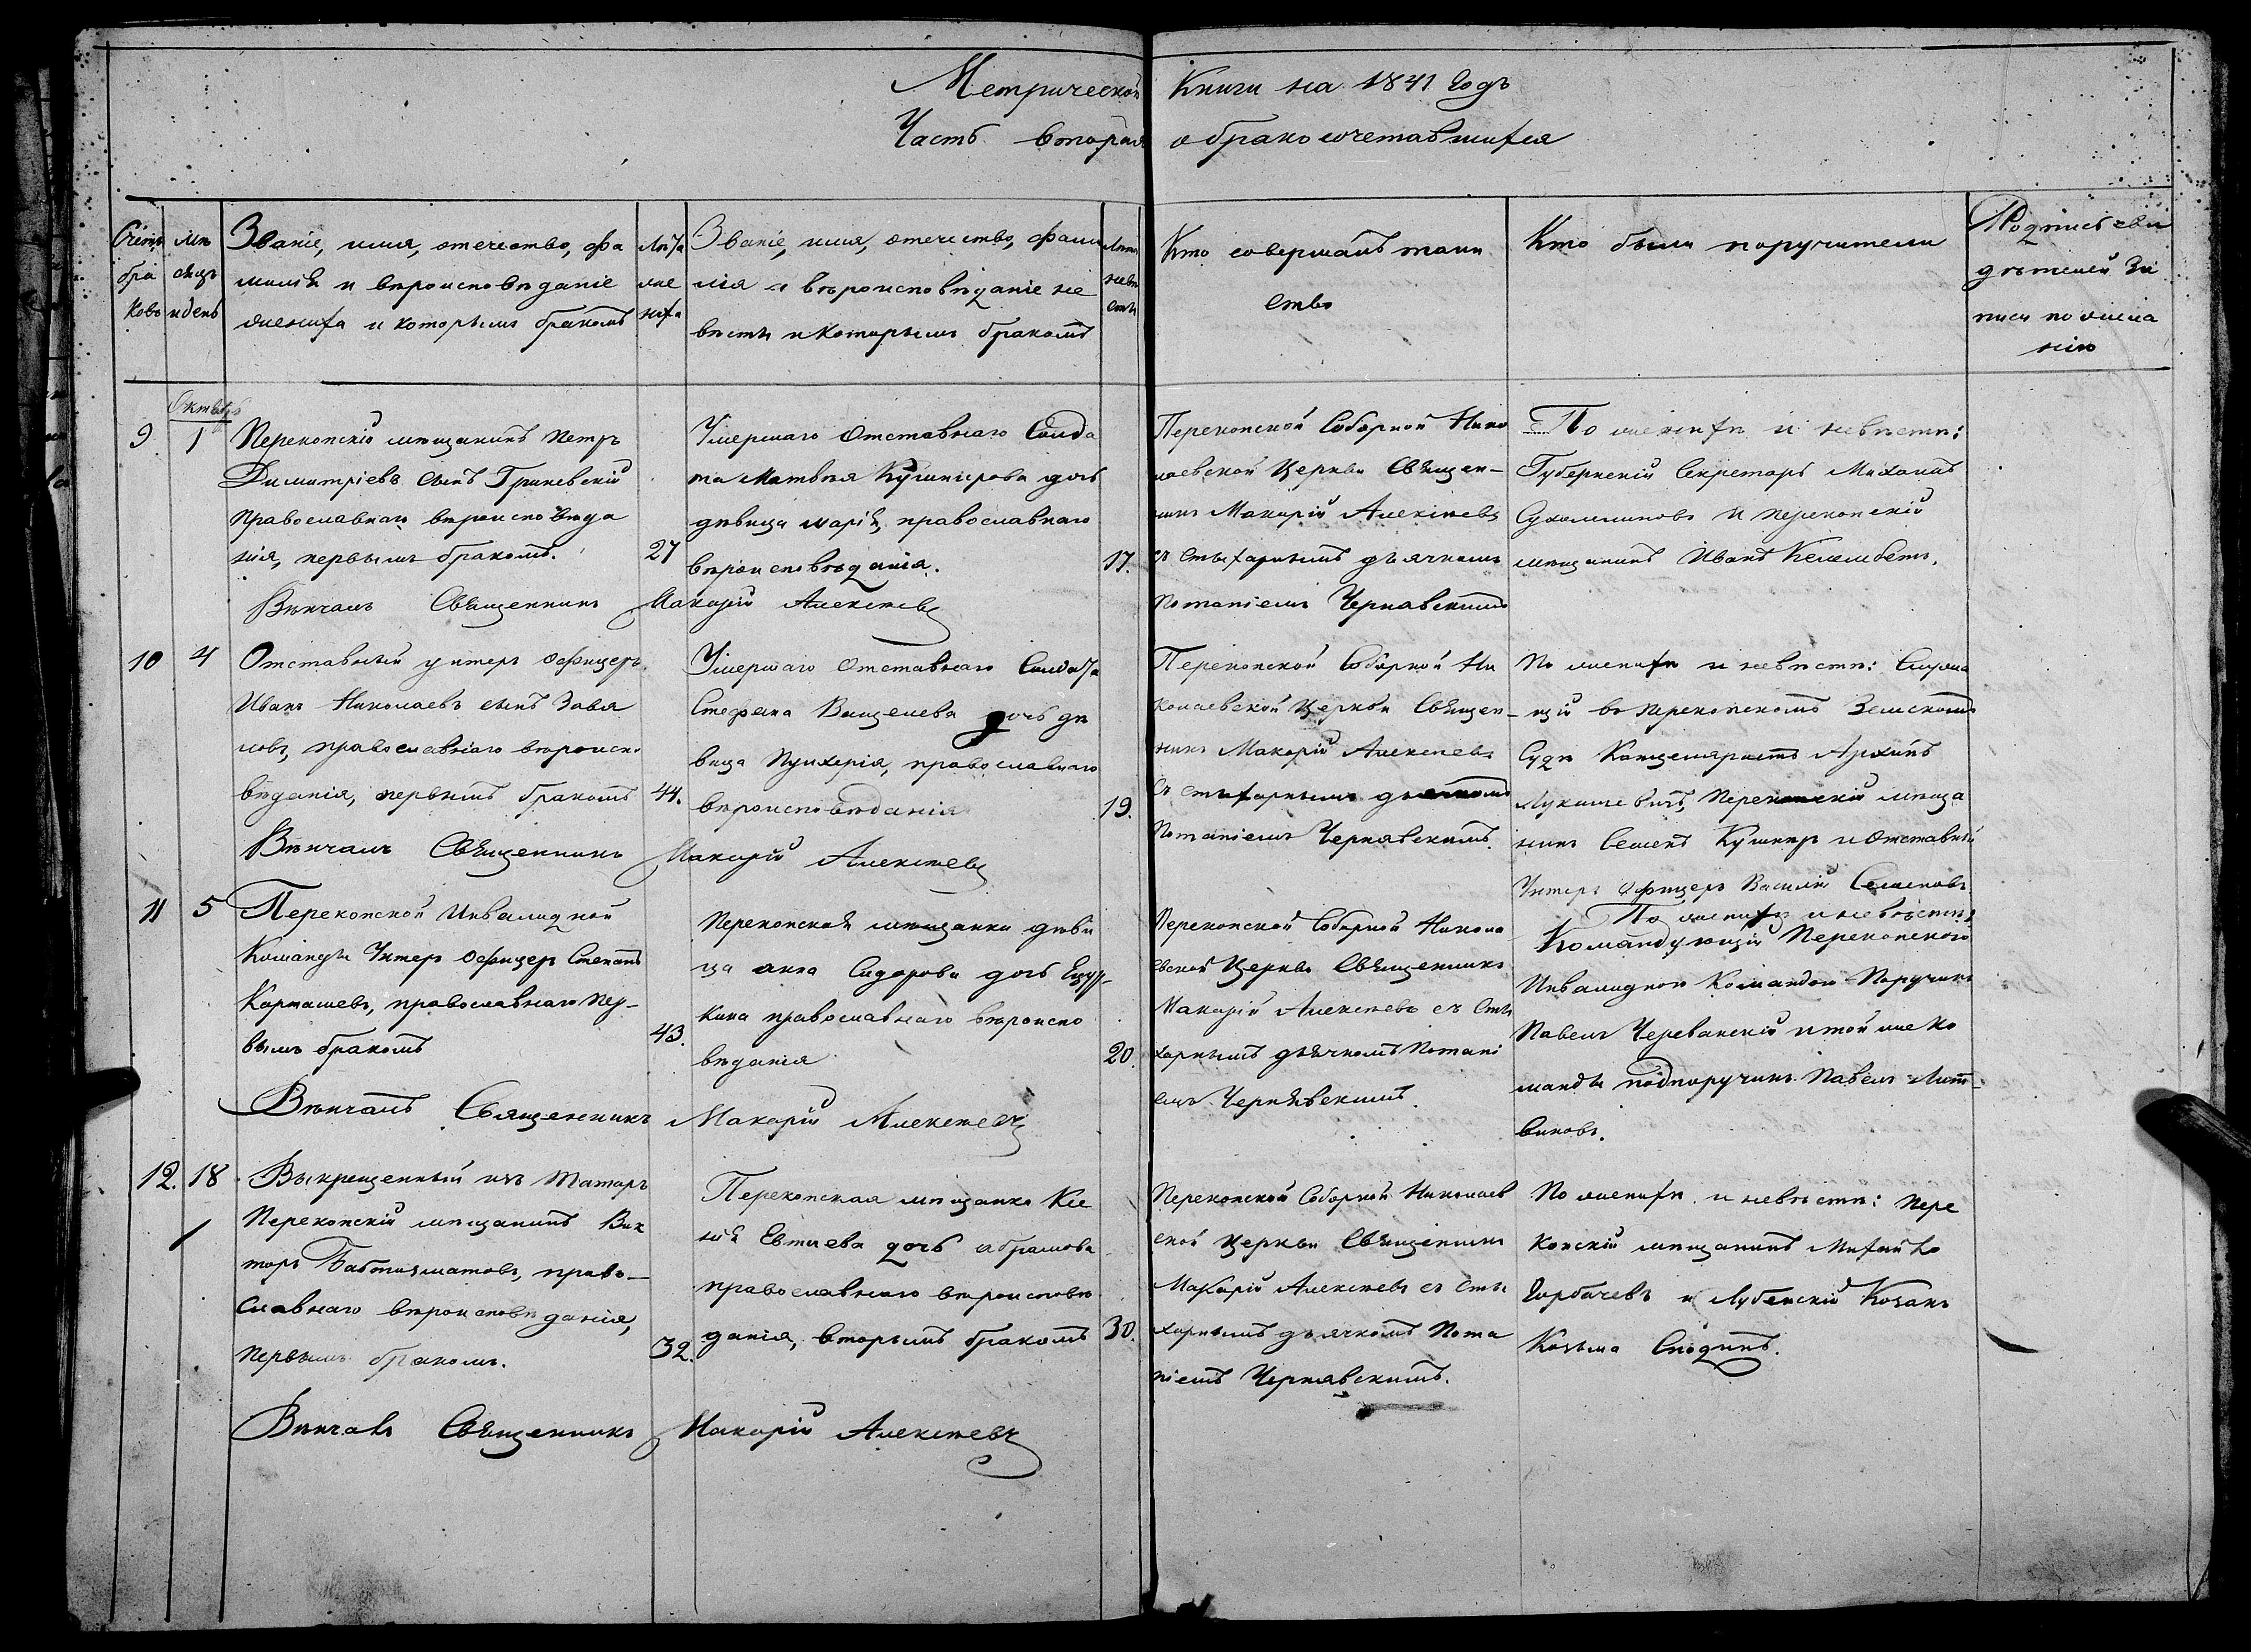 Метрической Книги на 1841 Годъ
Часть вторая о бракосочетавшихся
Счетъ
бра
ковъ
мѣ
сяцъ
и день
Званіе, имя, отечество, фа
милія и вѣроисповѣданіе
жениха и которымъ бракомъ
Лѣта
же
ниха
Званіе, имя, отечество, фами
лія и вѣроисповѣданіе не
вѣсты и которымъ бракомъ
Лѣта
невѣ
сты
Кто совершалъ таин
ство
Кто были поручители
Подпись сви
дѣтелей За
писи по жела
нію
Октябрь
9
1
Перекопскій мѣщанинъ Петръ
Димитріевъ сынъ Гриневскій
Православнаго вѣроисповѣда
нія, первымъ бракомъ.
27
Умершаго Отставнаго Солда
та Матвѣя Кушнерова дочь
дѣвица Марія, православнаго
вѣроисповѣданія.
17.
Перекопской Соборной Нико
лаевской Церкви Священ-
никъ Макарій Алексѣевъ
съ стихарнымъ дьячкомъ
Потапіемъ Чернявскимъ
По женихѣ и невѣстѣ:
Губернскій Секретарь Михаилъ
и перекопскій
мѣщанинъ Иванъ Келембетъ.
Вѣнчалъ Священникъ Макарій Алексѣевъ
10
4
Отставный унтеръ офицеръ
Иванъ Николаевъ сынъ Завя
ловъ, православнаго вѣроиспо
вѣданія, первымъ бракомъ
44.
Умершаго Отставнаго Солдата
Стефана Ващенева дочь дѣ
вица Пулхерія, православнаго
вѣроисповѣданія
19.
Перекопской Соборной Ни
колаевской Церкви Священ-
никъ Макарій Алексѣевъ
Съ стихарнымъ дьячкомъ
Потапіемъ Чернявскимъ.
По женихѣ и невѣстѣ: Служа
щій въ перекопскомъ Земскомъ
Судѣ Канцеляристъ Архипъ
Лукашевичъ, Перекопскій мѣща
нинъ Семенъ Кушниръ и Отставный
Унтеръ офицеръ Василій Семеновъ
Вѣнчалъ Священникъ Макарій Алексѣевъ
11
5
Перекопской Инвалидной
Команды Унтеръ офицеръ Степанъ
Карташевъ, православнаго пер-
вымъ бракомъ
43.
Перекопская мѣщанка дѣви
ца Анна Сидорова дочь
православнаго вѣроиспо
вѣданія
20.
Перекопской Соборной Никола
евской Церкви Священникъ
Макарій Алексѣевъ съ Сти
харнымъ дьячкомъ Потапі
емъ Чернявскимъ.
По женихѣ и невѣстѣ:
Командующій Перекопскою
Инвалидною Командою Поручикъ
Павелъ Череванскій и той же Ко
манды подпоручикъ Павелъ Лит-
виновъ.
Вѣнчалъ Священникъ Макарій Алексѣевъ
12.
18
Выкрещенный изъ Татаръ
Перекопскій мѣщанинъ Вик
торъ право-
славнаго вѣроисповѣданія,
первымъ бракомъ.
32.
Перекопская мѣщанка Ксе
нія Евтиева дочь Абрамова
православнаго вѣроисповѣ
данія, вторымъ бракомъ
30.
Перекопской Соборной Николаев
ской Церкви Священникъ
Макарій Алексѣевъ съ Сти
харнымъ дьячкомъ Пота
піемъ Чернявскимъ.
По женихѣ и невѣстѣ: Пере
копскій мѣщанинъ Михайло
Горбачевъ и Лубенскій Козакъ
Козьма
Вѣнчалъ Священникъ Макарій Алексѣевъ